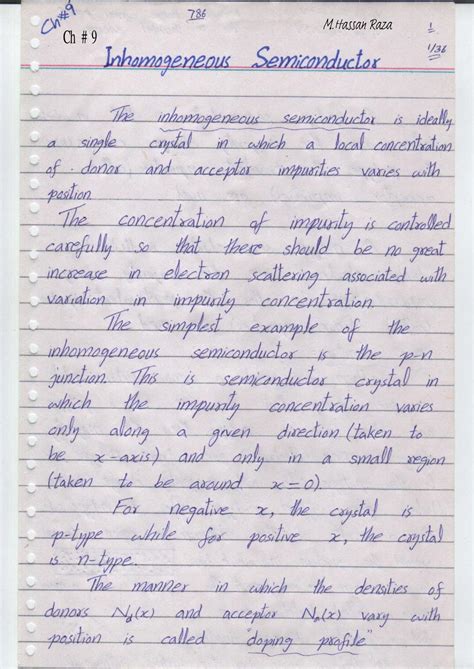 Ch#9
786
M.Hassan Raza
1
Ch # 9
1/36
Inhomogeneous Semiconductor
The inhomogeneous semiconductor is ideally
a single crystal in which a local concentration
of donor and acceptor impurities varies with
position
The concentration of impurity is controlled
carefully so that there should be no great
increase in electron scattering associated with
variation in impurity concentration.
The simplest example of the
inhomogeneous semiconductor is the p-n
junction. This is semiconductor crystal in
which the impurity concentration varies
only along a given direction (taken to
be x-axis) and only in a small region
(taken to be around x=0).
For negative x, the crystal is
p-type while for positive x, the crystal
is n-type.
The manner in which the densities of
donors Nd(x) and acceptor Na(x) vary with
position is called "doping profile"